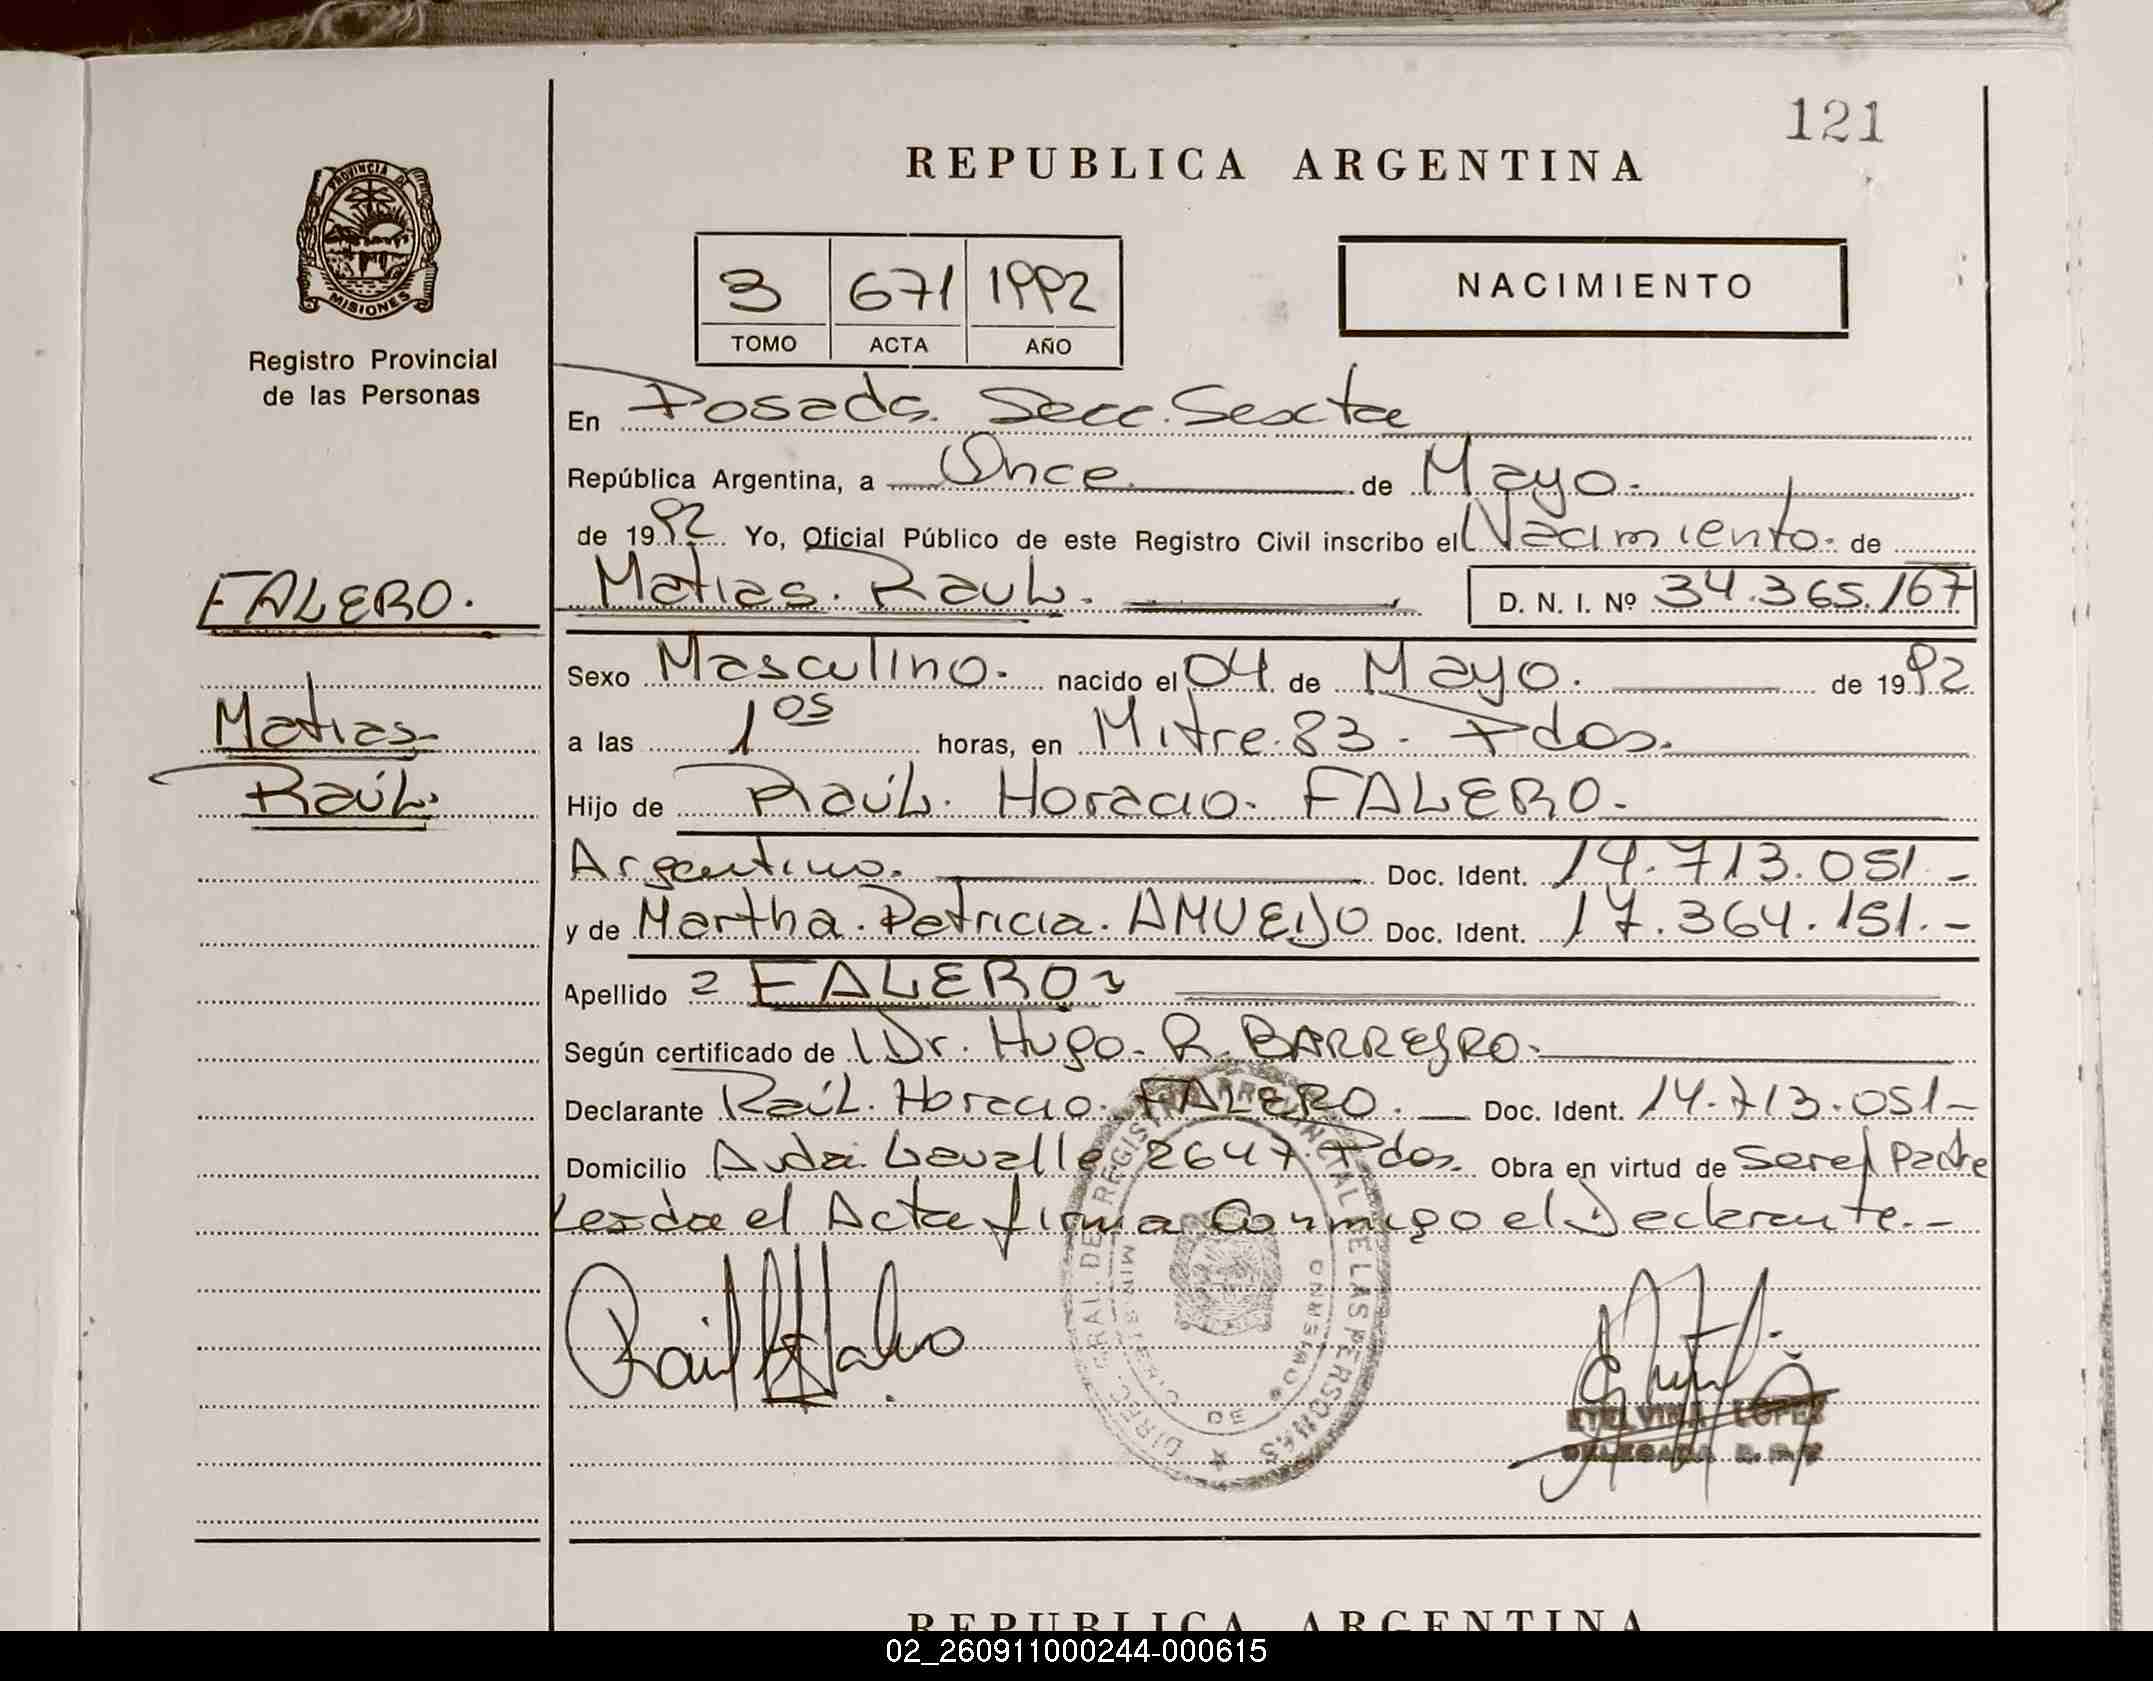 121
REPUBLICA ARGENTINA
PROVINCIA DE
MISIONES
Registro Provincial
de las Personas
3 671 1992
TOMO ACTA AÑO
NACIMIENTO
En Posadas. Secc. Sexta
República Argentina, a Once de Mayo.
de 1992 Yo, Oficial Público de este Registro Civil inscribo el Nacimiento. de
Matias. Raul. D. N. I. Nº 34.365.167
FALERO.
Matias
Raúl.
Sexo Masculino. nacido el 04 de Mayo. de 1992
a las 1os horas, en Mitre 83 - Pdas.
Hijo de Raúl. Horacio. FALERO.
Argentino. Doc. Ident. 14.713.051.-
y de Martha. Patricia. Doc. Ident. 17.364.151.-
Apellido FALERO
Según certificado de Dr. Hugo. R. BARREYRO.
Declarante Raúl. Horacio. FALERO. Doc. Ident. 14.713.051-
Domicilio Avda. Lavalle 2647. Pdas. Obra en virtud de Ser el Padre
Leida el Acta firma Conmigo el Declarante.-
DIREC. GRAL. DEL REGISTRO PROVINCIAL DE LAS PERSONAS
MINISTERIO DE GOBIERNO
ETELVINA LOPEZ
DELEGADA R. P. P.
REPUBLICA ARGENTINA
02_260911000244-000615